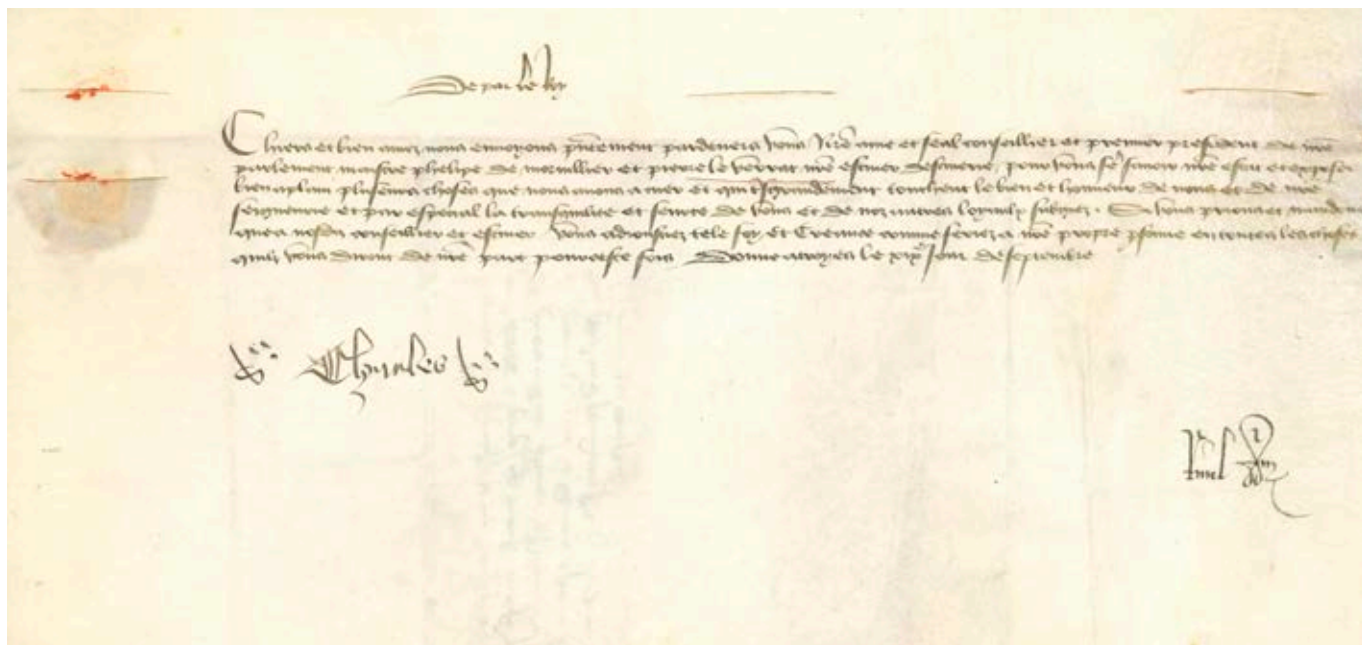 De par le Roy
Chiers et bien amez nous envoyons p̃ntement pardevers vous n̄r̄e ame et feal conseillier et premier president de n̄r̄e
parlement maistre phelipe de morvillier et pierre le verrat n̄r̄e escuier descuierie pour vous fe͂ savoir n̄r̄e estat et exposer
bien aplain plusieurs choses que nous avons a cuer et qui tresgrandement touchent le bien et honneur de nous et de n̄r̄e
seigneurie et par especial la transquilite et seurte de vous et de noz autres loyaulx subgiez. Si vous prions et mandons
que a nosdiz conseillier et escuier vous adioustez tele foy et creance comme feriez a n̄r̄e propre p̱sonne en toutes les choses
quilz vous diront de n̄r̄e part pour ceste fois Donne a troyes le xix͏ᵉ jour de septembre
Charles